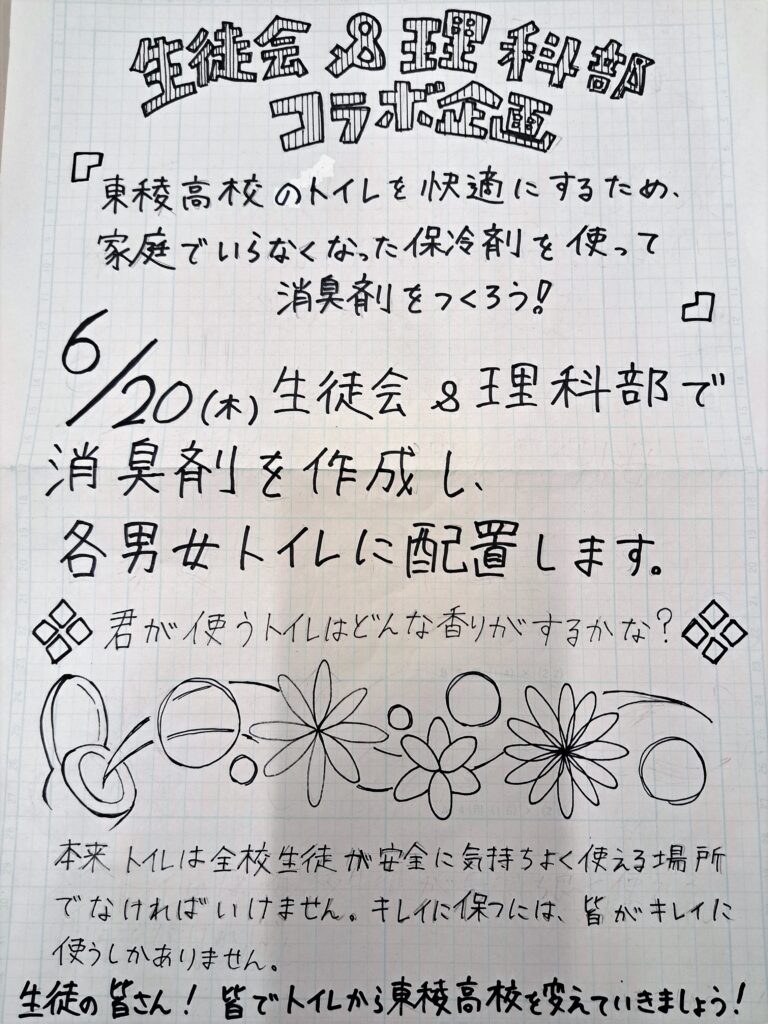 生徒会&理科部
コラボ企画
『東稜高校のトイレを快適にするため、
家庭でいらなくなった保冷剤を使って
消臭剤をつくろう!』
6/20(木)生徒会&理科部で
消臭剤を作成し、
各男女トイレに配置します。
君が使うトイレはどんな香りがするかな?
本来トイレは全校生徒が安全に気持ちよく使える場所
でなければいけません。キレイに保つには、皆がキレイに
使うしかありません。
生徒の皆さん!皆でトイレから東稜高校を変えていきましょう!